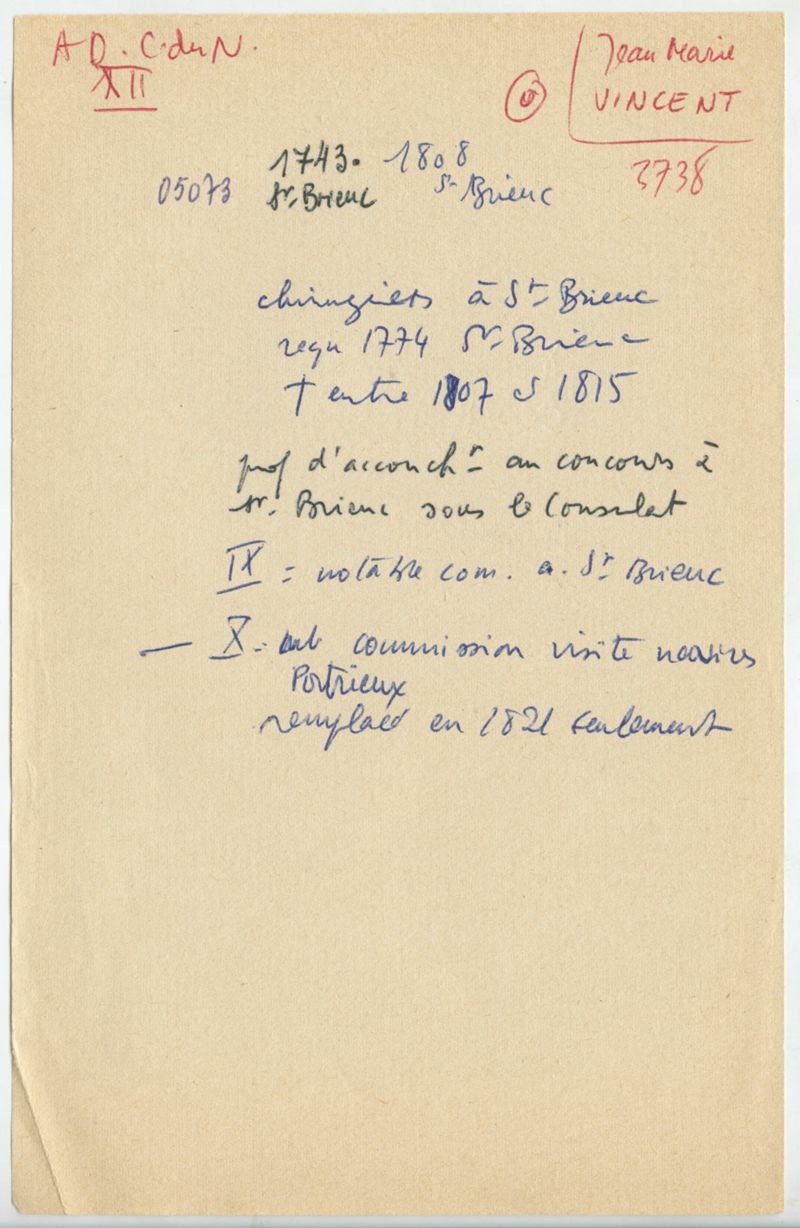 A D. C. du N.
XII
Jean Marie
VINCENT
3738
1743. 1808
05073 St. Brieuc St Brieuc
chirurgiens à St Brieuc
reçu 1774 St Brieuc
† entre 1807 et 1815
prof d'accoucht au concours à
St. Brieuc sous le Consulat
IX = notable com. a. St Brieuc
— X = commission visite navires
Portrieux
remplacé en 1821 seulement